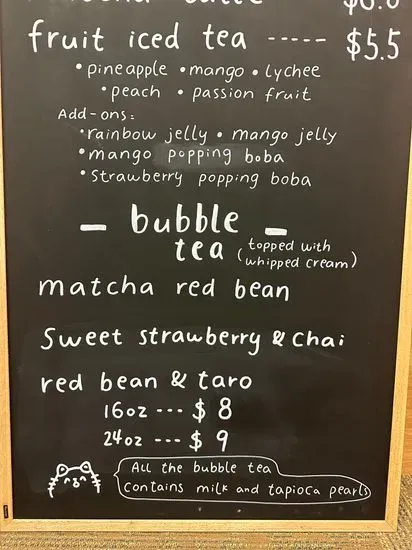 fruit iced tea ----- $5.5
• pineapple • mango • lychee
• peach • passion fruit
Add-ons:
• rainbow jelly • mango jelly
• mango popping boba
• strawberry popping boba
— bubble —
tea (topped with
whipped cream)
matcha red bean
Sweet strawberry & chai
red bean & taro
16oz --- $8
24oz --- $9
All the bubble tea
contains milk and tapioca pearls